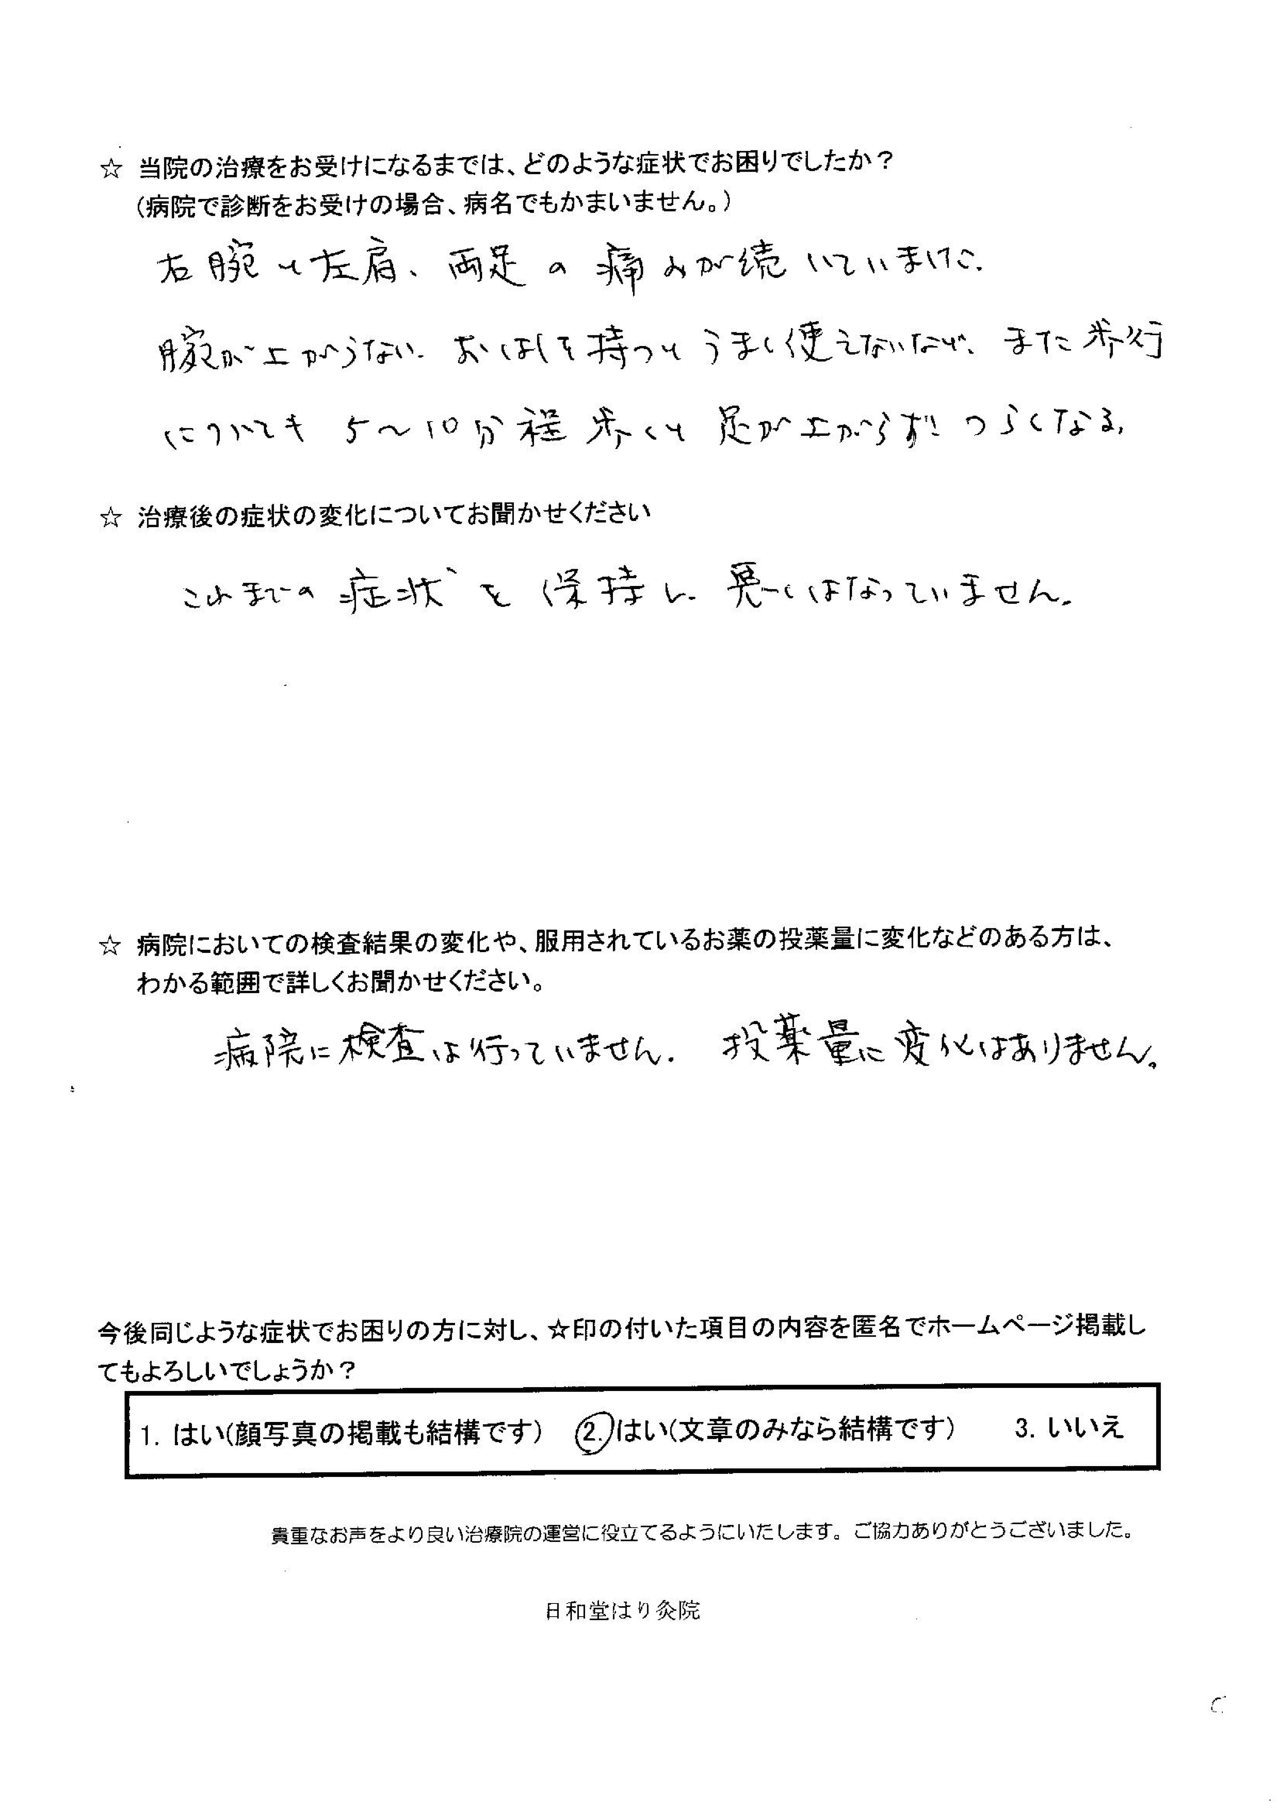 ☆ 当院の治療をお受けになるまでは、どのような症状でお困りでしたか？
（病院で診断をお受けの場合、病名でもかまいません。）
右腕と左肩、両足の痛みが続いていました.
腕が上がらない. おはしを持つとうまく使えないなど、また歩行
についても 5〜10分程歩くと足が上がらずつらくなる.
☆ 治療後の症状の変化についてお聞かせください
これまでの症状を保持し、悪くはなっていません.
☆ 病院においての検査結果の変化や、服用されているお薬の投薬量に変化などのある方は、
わかる範囲で詳しくお聞かせください。
病院に検査は行っていません. 投薬量に変化はありません。
今後同じような症状でお困りの方に対し、☆印の付いた項目の内容を匿名でホームページ掲載し
てもよろしいでしょうか？
1. はい（顔写真の掲載も結構です） 2. はい（文章のみなら結構です） 3. いいえ
貴重なお声をより良い治療院の運営に役立てるようにいたします。ご協力ありがとうございました。
日和堂はり灸院